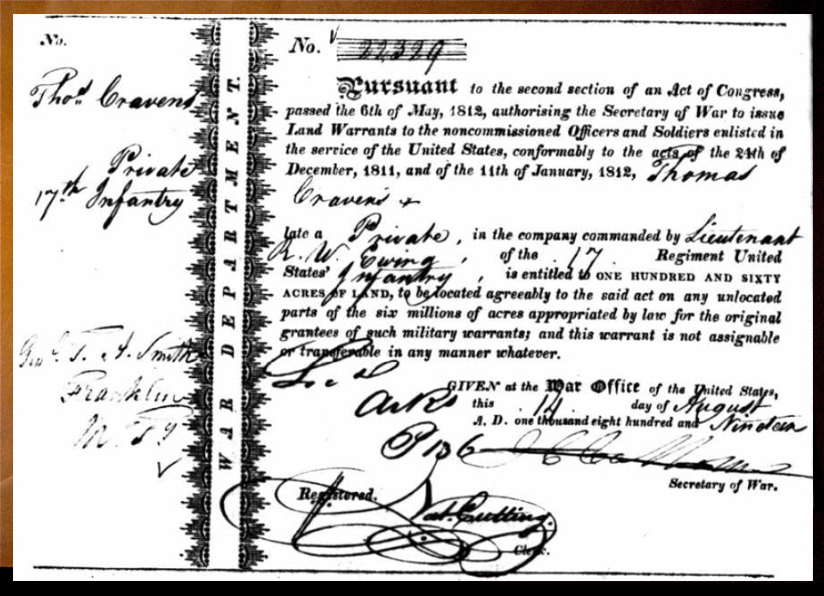 No.
Thos. Cravens
Private
17.th Infantry
Genl. T. A. Smith
Franklin
M. Ty
WAR DEPARTMENT.
No. 22329
Pursuant to the second section of an Act of Congress,
passed the 6th of May, 1812, authorising the Secretary of War to issue
Land Warrants to the noncommissioned Officers and Soldiers enlisted in
the service of the United States, conformably to the acts of the 24th of
December, 1811, and of the 11th of January, 1812, Thomas
Cravens
late a Private, in the company commanded by Lieutenant
R. W. Ewing, of the .17. Regiment United
States' Infantry, is entitled to ONE HUNDRED AND SIXTY
ACRES OF LAND, to be located agreeably to the said act on any unlocated
parts of the six millions of acres appropriated by law for the original
grantees of such military warrants; and this warrant is not assignable
or transferable in any manner whatever.
GIVEN at the War Office of the United States,
this .14. day of August
A. D. one thousand eight hundred and Nineteen
Arks
P 136
Secretary of War.
Registered.
Nat. Cutting.
Clerk.